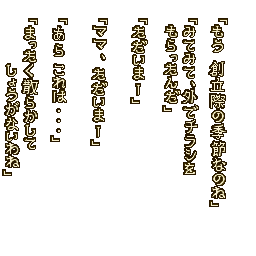 「もう　創立際の季節なのね」
「みてみて、外でチラシを
もらったんだ」
「ただいまー」
「ママ、ただいまー」
「あら　これは・・・」
「まったく散らかして
しょうがないわね」